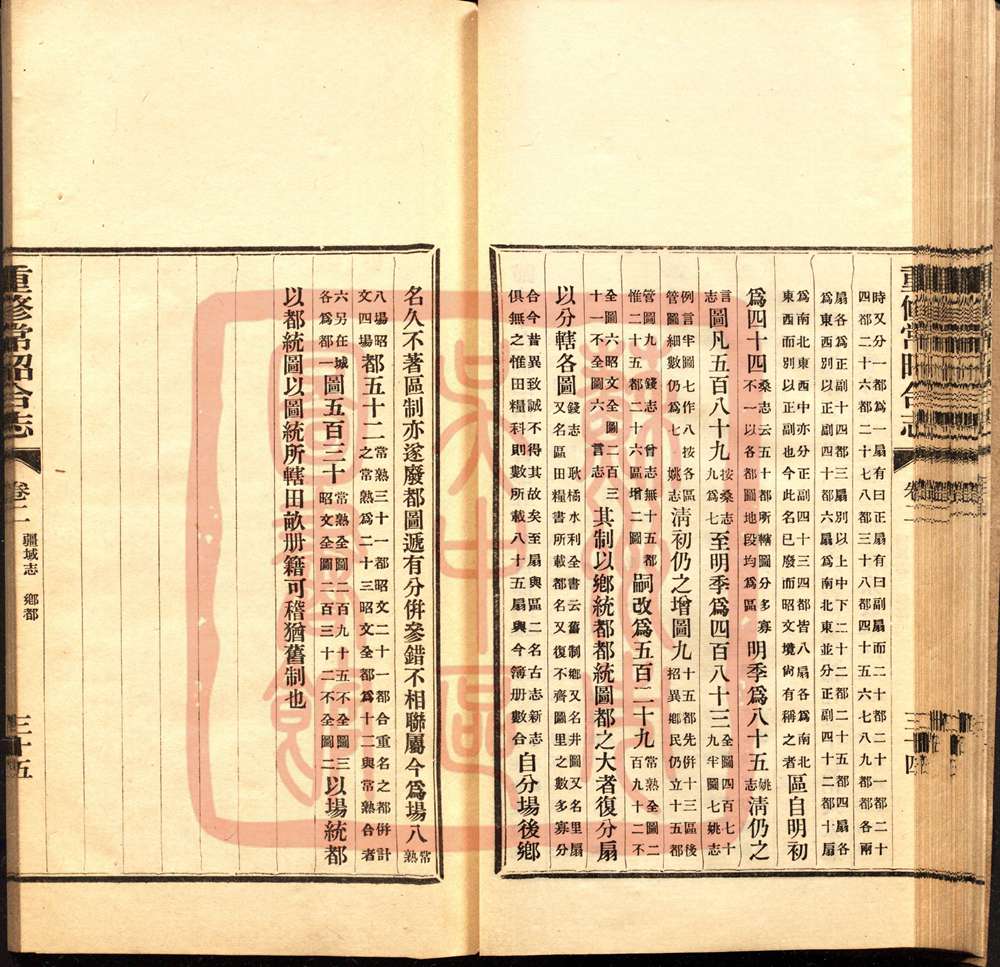 重修常昭合志 卷二 三十四
時又分一都爲一扇有曰正扇有曰副扇而二十都二十一都二十
四都二十六都二十七八都三十八都四十五六七八九都各兩
扇各爲正副十四都三扇別以上中下二十二都二十五都四扇各
爲東西別以正副四十都六扇爲南北東並分正副四十二都十扇
爲南北東西中亦分正副四十三四都皆八扇各爲南北
東西而別以正副也今此名已廢而昭文境尚有稱之者 區自明初
爲四十四 桑志云五十都所轄圖分多寡不一以各都圖地段均爲區 明季爲八十五 姚志 清仍之
言志 圖凡五百八十九 按桑志九爲七 至明季爲四百八十三 全圖四百七十九半圖七姚志
例言半圖七作八按各區管圖細數仍爲七 姚志 清初仍之增圖九 十五都先併十三區後招異鄉民仍立十五都
管圖九 錢志 曾志無十五都惟二十五都二十六區增二圖 嗣改爲五百二十九 常熟全圖二百九十二不
全圖六昭文全圖二百三十一不全圖六 言志 其制以鄉統都都統圖都之大者復分扇
以分轄各圖 錢志 耿橘水利全書云舊制鄉又名井圖又名里扇又名區田糧書所載都名又復不齊圖里之數多寡分
合今昔異致誠不得其故矣至扇與區二名古志新志俱無之惟田糧科則數所載八十五扇與今簿册數合 自分場後鄉
名久不著區制亦遂廢都圖遞有分併參錯不相聯屬今爲場八 常熟
八場昭文四場 都五十二 常熟三十一都昭文二十一都合重名之都併計之常熟爲二十三昭文全都爲十二與常熟合者
六另在城各爲都一 圖五百三十 常熟全圖二百九十五不全圖三昭文全圖二百三十二不全圖二 以場統都
以都統圖以圖統所轄田畝册籍可稽猶舊制也
重修常昭合志 卷二 疆域志 鄉都 三十五